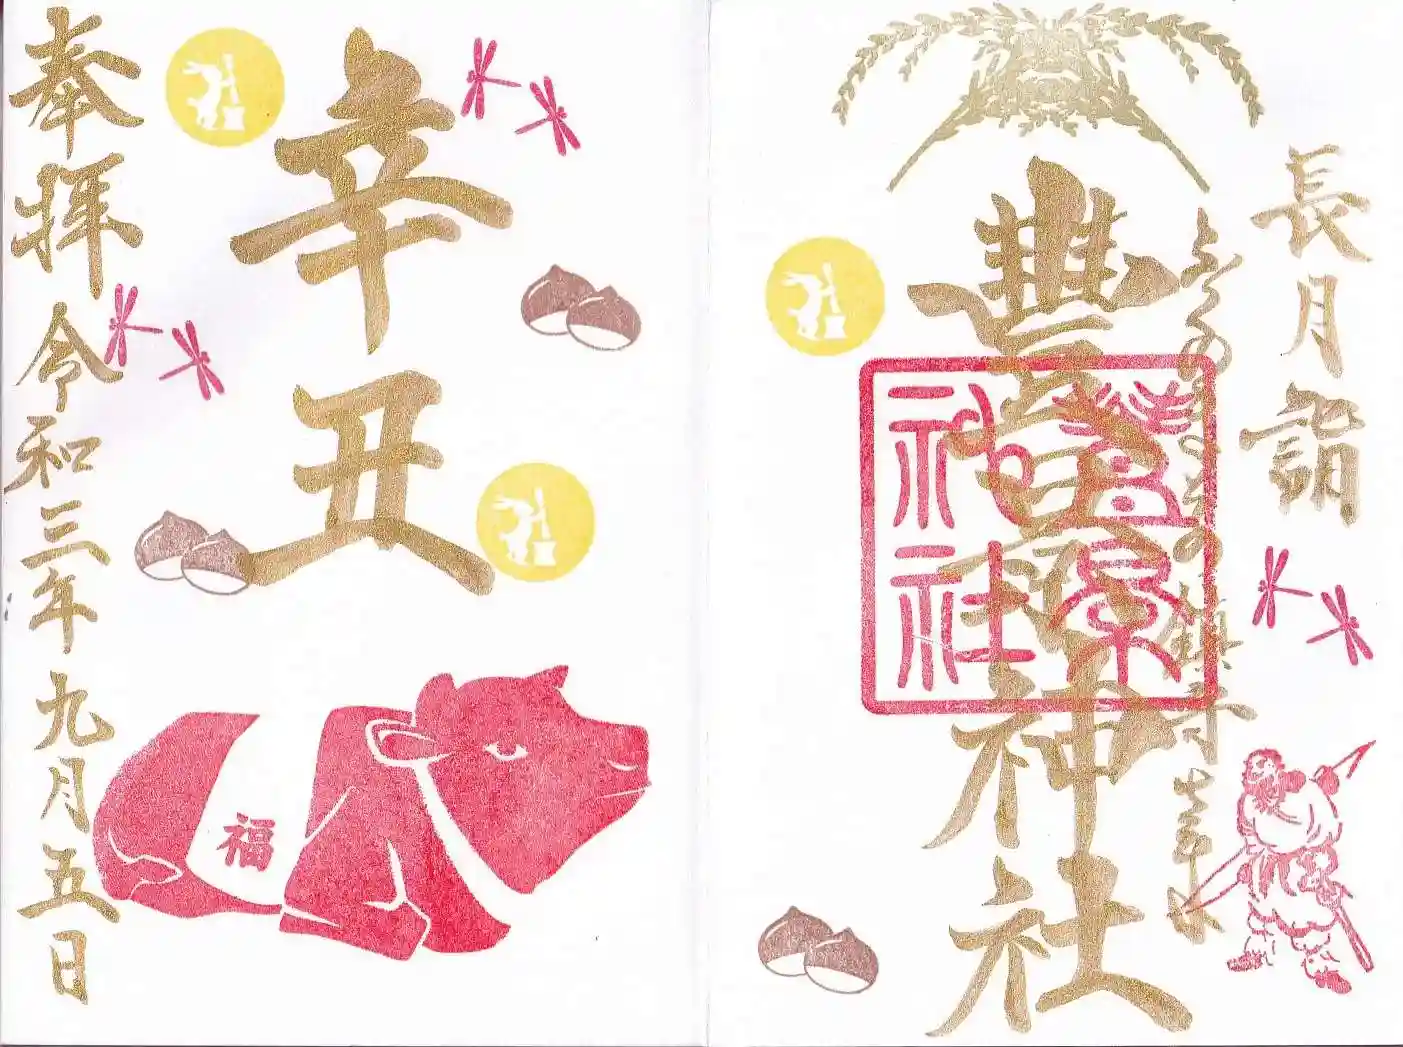 長月詣
豊景神社
豊景
神社
幸丑
福
奉拝 令和三年九月五日